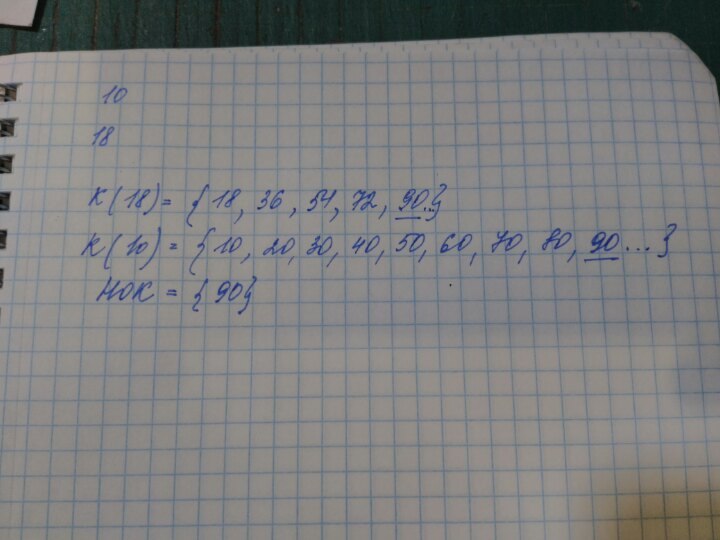 10
18
К(18) = {18, 36, 54, 72, 90...}
К(10) = {10, 20, 30, 40, 50, 60, 70, 80, 90...}
НОК = {90}